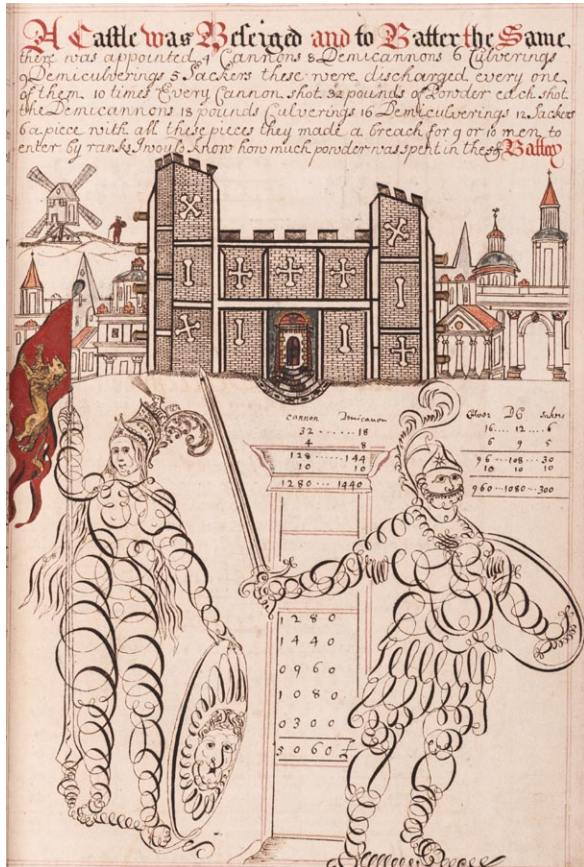 A Castle was Beseiged and to Batter the Same
there was appointed 4 Cannons 8 Demicannons 6 Culverings
9 Demiculverings 5 Sackers these were discharged every one
of them 10 times Every Cannon shot 32 pounds of Powder each shot
the Demicannons 18 pounds Culverings 16 Demiculverings 12 Sackers
6 a piece with all these pieces they made a breach for 9 or 10 men to
enter by ranks I would know how much powder was spent in these Battery
Cannon Demicanon
32 ...... 18
4 8
128 ...... 144
10 10
1280 ... 1440
DC Sakers
16 .... 12 .. 6
6 9 5
96 .. 108 .. 30
10 10 10
960 .. 1080 .. 300
1280
1440
0960
1080
0300
5060